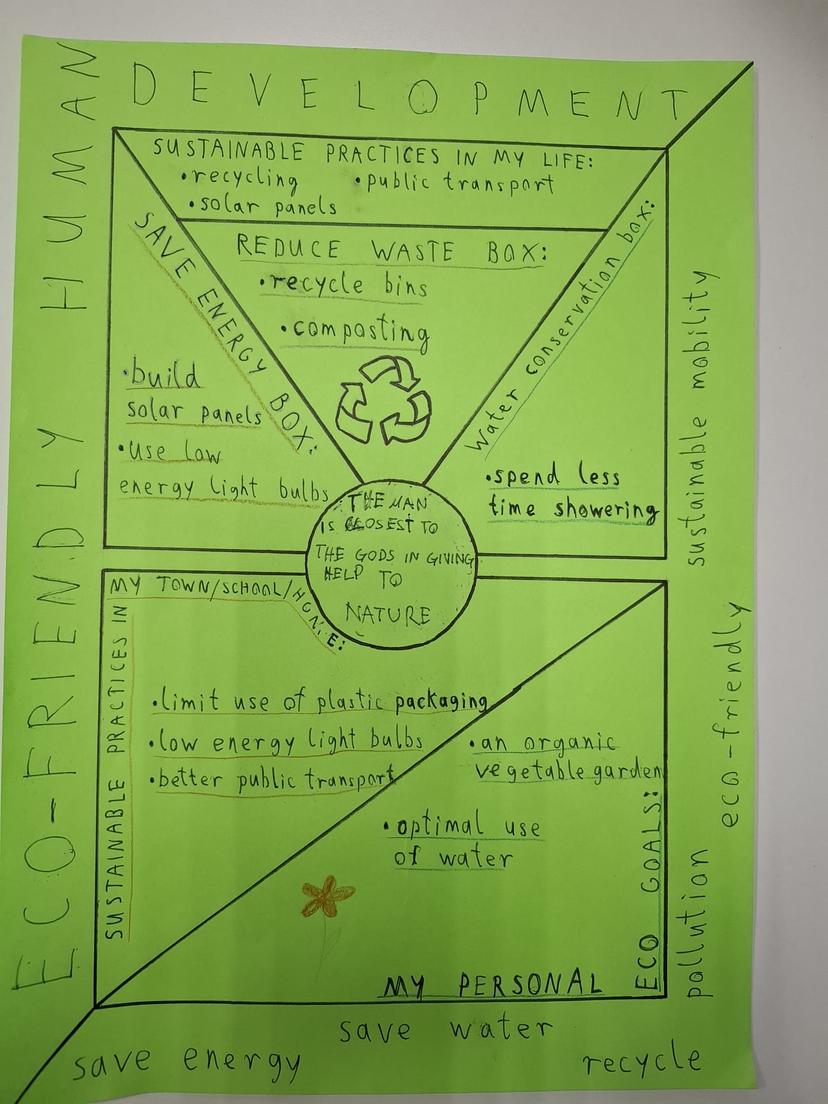 ECO-FRIENDLY HUMAN
DEVELOPMENT
SUSTAINABLE PRACTICES IN MY LIFE:
•recycling •public transport
•solar panels
REDUCE WASTE BOX:
•recycle bins
•composting
SAVE ENERGY BOX:
•build
solar panels
•use low
energy light bulbs
Water conservation box:
•spend less
time showering
THE MAN
IS CLOSEST TO
THE GODS IN GIVING
HELP TO
NATURE
SUSTAINABLE PRACTICES IN
MY TOWN/SCHOOL/HOME:
•limit use of plastic packaging
•low energy light bulbs
•better public transport
MY PERSONAL
ECO GOALS:
•an organic
vegetable garden
•optimal use
of water
sustainable mobility
eco-friendly
pollution
save energy
save water
recycle